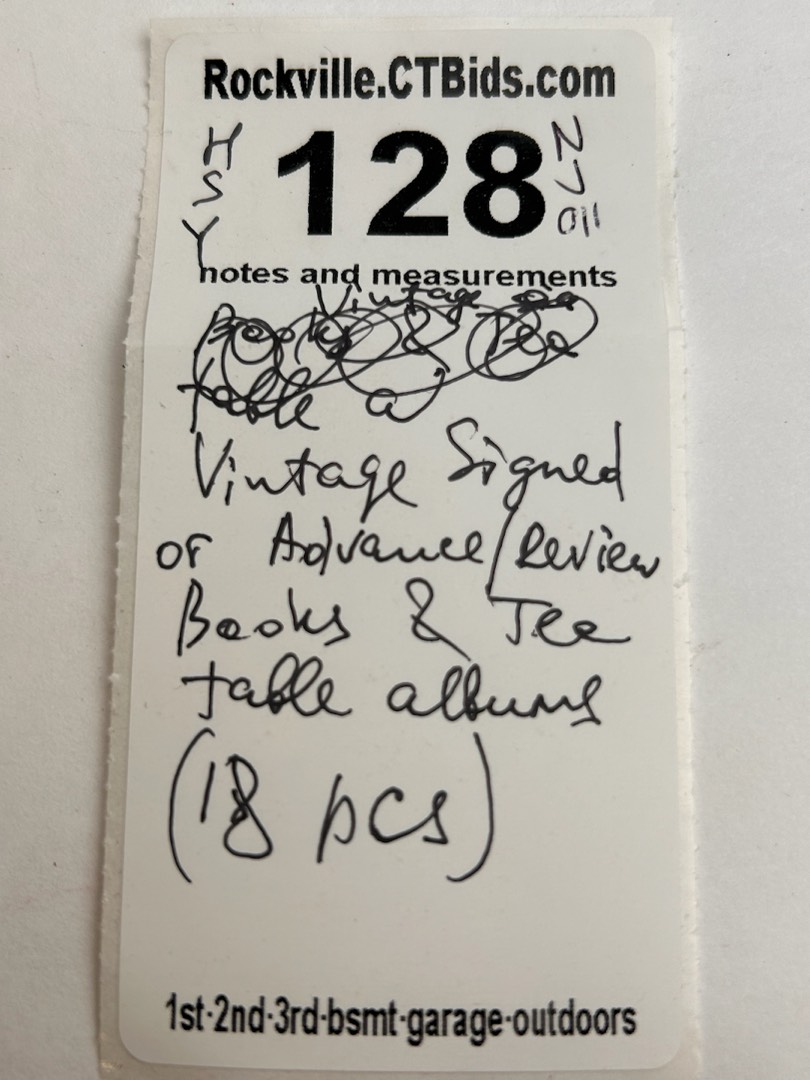 Rockville.CTBids.com
HSY
128
notes and measurements
Vintage
Books & Tea
table a
Vintage Signed
or Advance/Review
Books & Tea
table albums
(18 pcs)
1st·2nd·3rd·bsmt·garage·outdoors